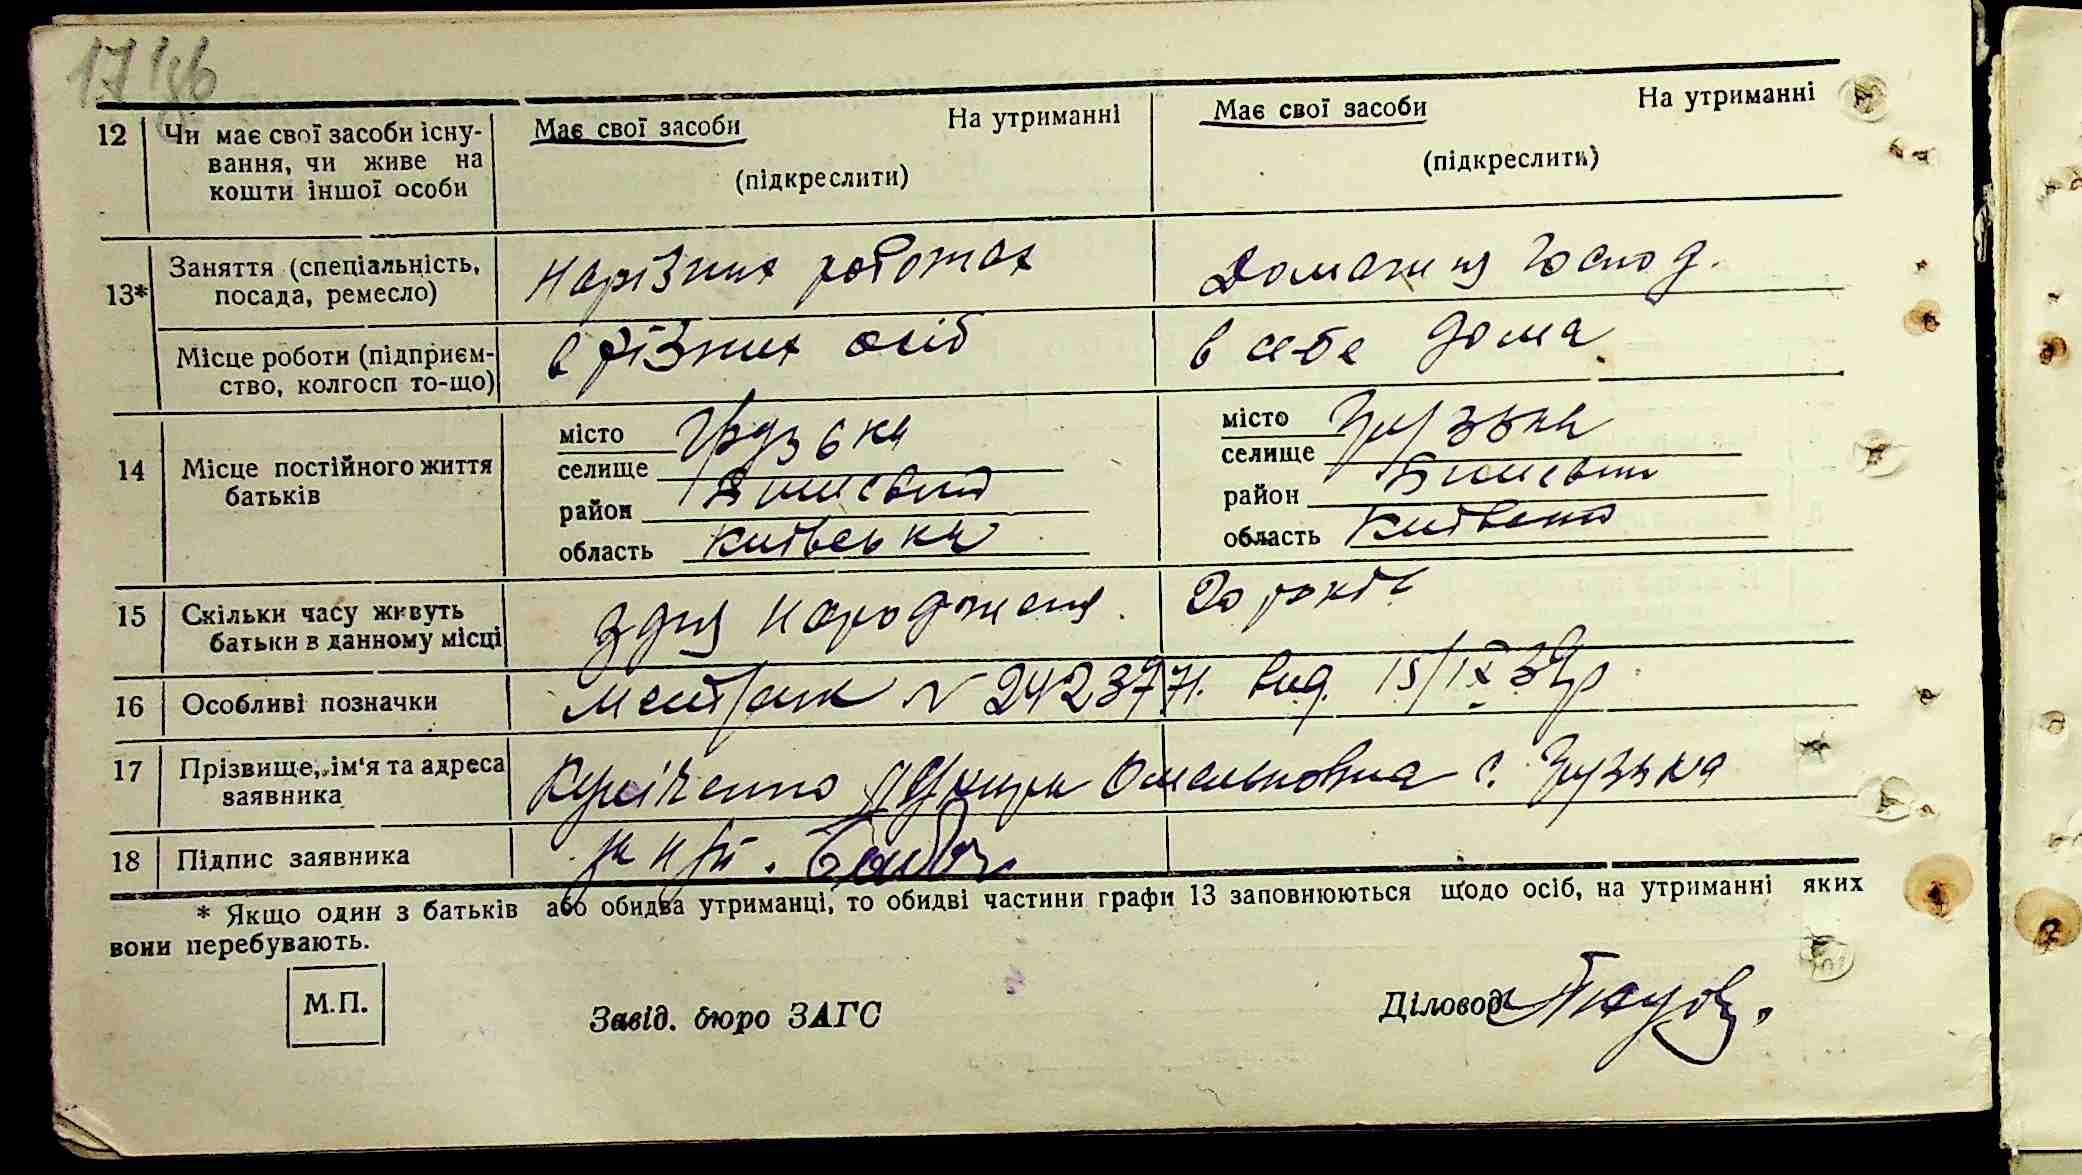 17 зв
12 Чи має свої засоби існу-
вання, чи живе на
кошти іншої особи
Має свої засоби На утриманні
(підкреслити)
Має свої засоби На утриманні
(підкреслити)
13* Заняття (спеціальність,
посада, ремесло)
На різних роботах
Домашня господ.
Місце роботи (підприєм-
ство, колгосп то-що)
в різних осіб
в себе дома
14 Місце постійного життя
батьків
місто
селище Грузька
район
область Київська
місто
селище Грузька
район
область
15 Скільки часу живуть
батьки в данному місці
з дня народження.
20 років
16 Особливі позначки
N 242397 вид. 15/IX 39р
17 Прізвище, ім'я та адреса
заявника
Омельновна с. Грузька
18 Підпис заявника
* Якщо один з батьків або обидва утриманці, то обидві частини графи 13 заповнюються щодо осіб, на утриманні яких
вони перебувають.
М.П.
Завід. бюро ЗАГС
Діловод